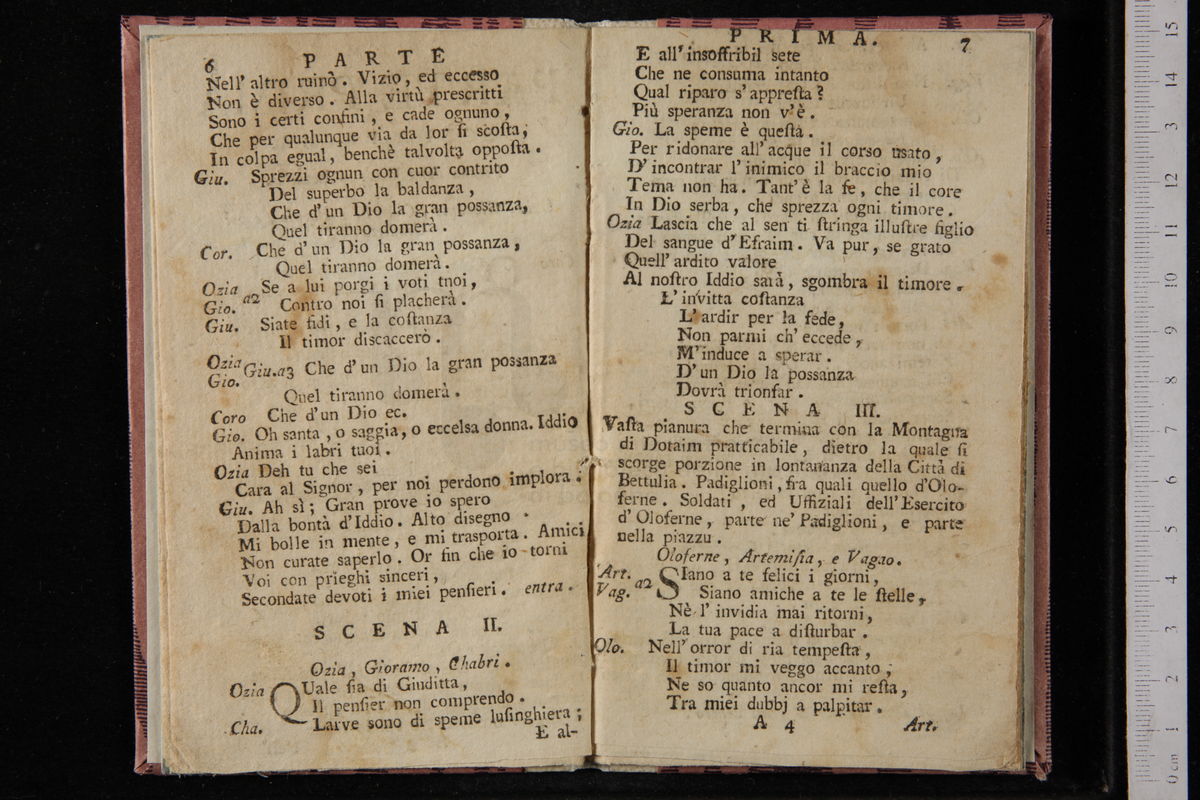 6 PARTE
Nell' altro ruinò. Vizio, ed eccesso
Non è diverso. Alla virtù prescritti
Sono i certi confini, e cade ognuno,
Che per qualunque via da lor ſi scoſta,
In colpa egual, benchè talvolta oppoſta.
Giu. Sprezzi ognun con cuor contrito
Del superbo la baldanza,
Che d'un Dio la gran possanza,
Quel tiranno domerà.
Cor. Che d'un Dio la gran possanza,
Quel tiranno domerà.
Ozia Se a lui porgi i voti tnoi,
Gio. a2 Contro noi ſi placherà.
Giu. Siate fidi, e la coſtanza
Il timor discaccerò.
Ozia Giu.a3 Che d'un Dio la gran possanza
Gio.
Quel tiranno domerà.
Coro Che d'un Dio ec.
Gio. Oh santa, o saggia, o eccelsa donna. Iddio
Anima i labri tuoi.
Ozia Deh tu che sei
Cara al Signor, per noi perdono implora.
Giu. Ah sì; Gran prove io spero
Dalla bontà d'Iddio. Alto disegno
Mi bolle in mente, e mi trasporta. Amici
Non curate saperlo. Or fin che io torni
Voi con prieghi sinceri,
Secondate devoti i miei penſieri. entra.
SCENA II.
Ozia, Gioramo, Chabri.
Ozia QUale ſia di Giuditta,
Il penſier non comprendo.
Cha. Larve sono di speme luſinghiera;
E al-
PRIMA. 7
E all' insoffribil sete
Che ne consuma intanto
Qual riparo s' appreſta?
Più speranza non v'è.
Gio. La speme è queſta.
Per ridonare all' acque il corso usato,
D' incontrar l' inimico il braccio mio
Tema non ha. Tant' è la fe, che il core
In Dio serba, che sprezza ogni timore.
Ozia Lascia che al sen ti ſtringa illuſtre figlio
Del sangue d'Efraim. Va pur, se grato
Quell' ardito valore
Al noſtro Iddio sarà, sgombra il timore.
L' invitta coſtanza
L' ardir per la fede,
Non parmi ch' eccede,
M'induce a sperar.
D' un Dio la possanza
Dovrà trionfar.
SCENA III.
Vaſta pianura che termina con la Montagna
di Dotaim pratticabile, dietro la quale ſi
scorge porzione in lontananza della Città di
Bettulia. Padiglioni, fra quali quello d'Olo-
ferne. Soldati, ed Uffiziali dell' Esercito
d' Oloferne, parte ne' Padiglioni, e parte
nella piazzu.
Oloferne, Artemiſia, e Vagao.
Art. SIano a te felici i giorni,
Vag. a2 Siano amiche a te le ſtelle,
Nè l' invidia mai ritorni,
La tua pace a diſturbar.
Olo. Nell' orror di ria tempeſta,
Il timor mi veggo accanto;
Ne so quanto ancor mi reſta,
Tra miei dubbj a palpitar.
A 4 Art.
15
14
13
12
11
10
9
8
7
6
5
4
3
2
1
0 cm